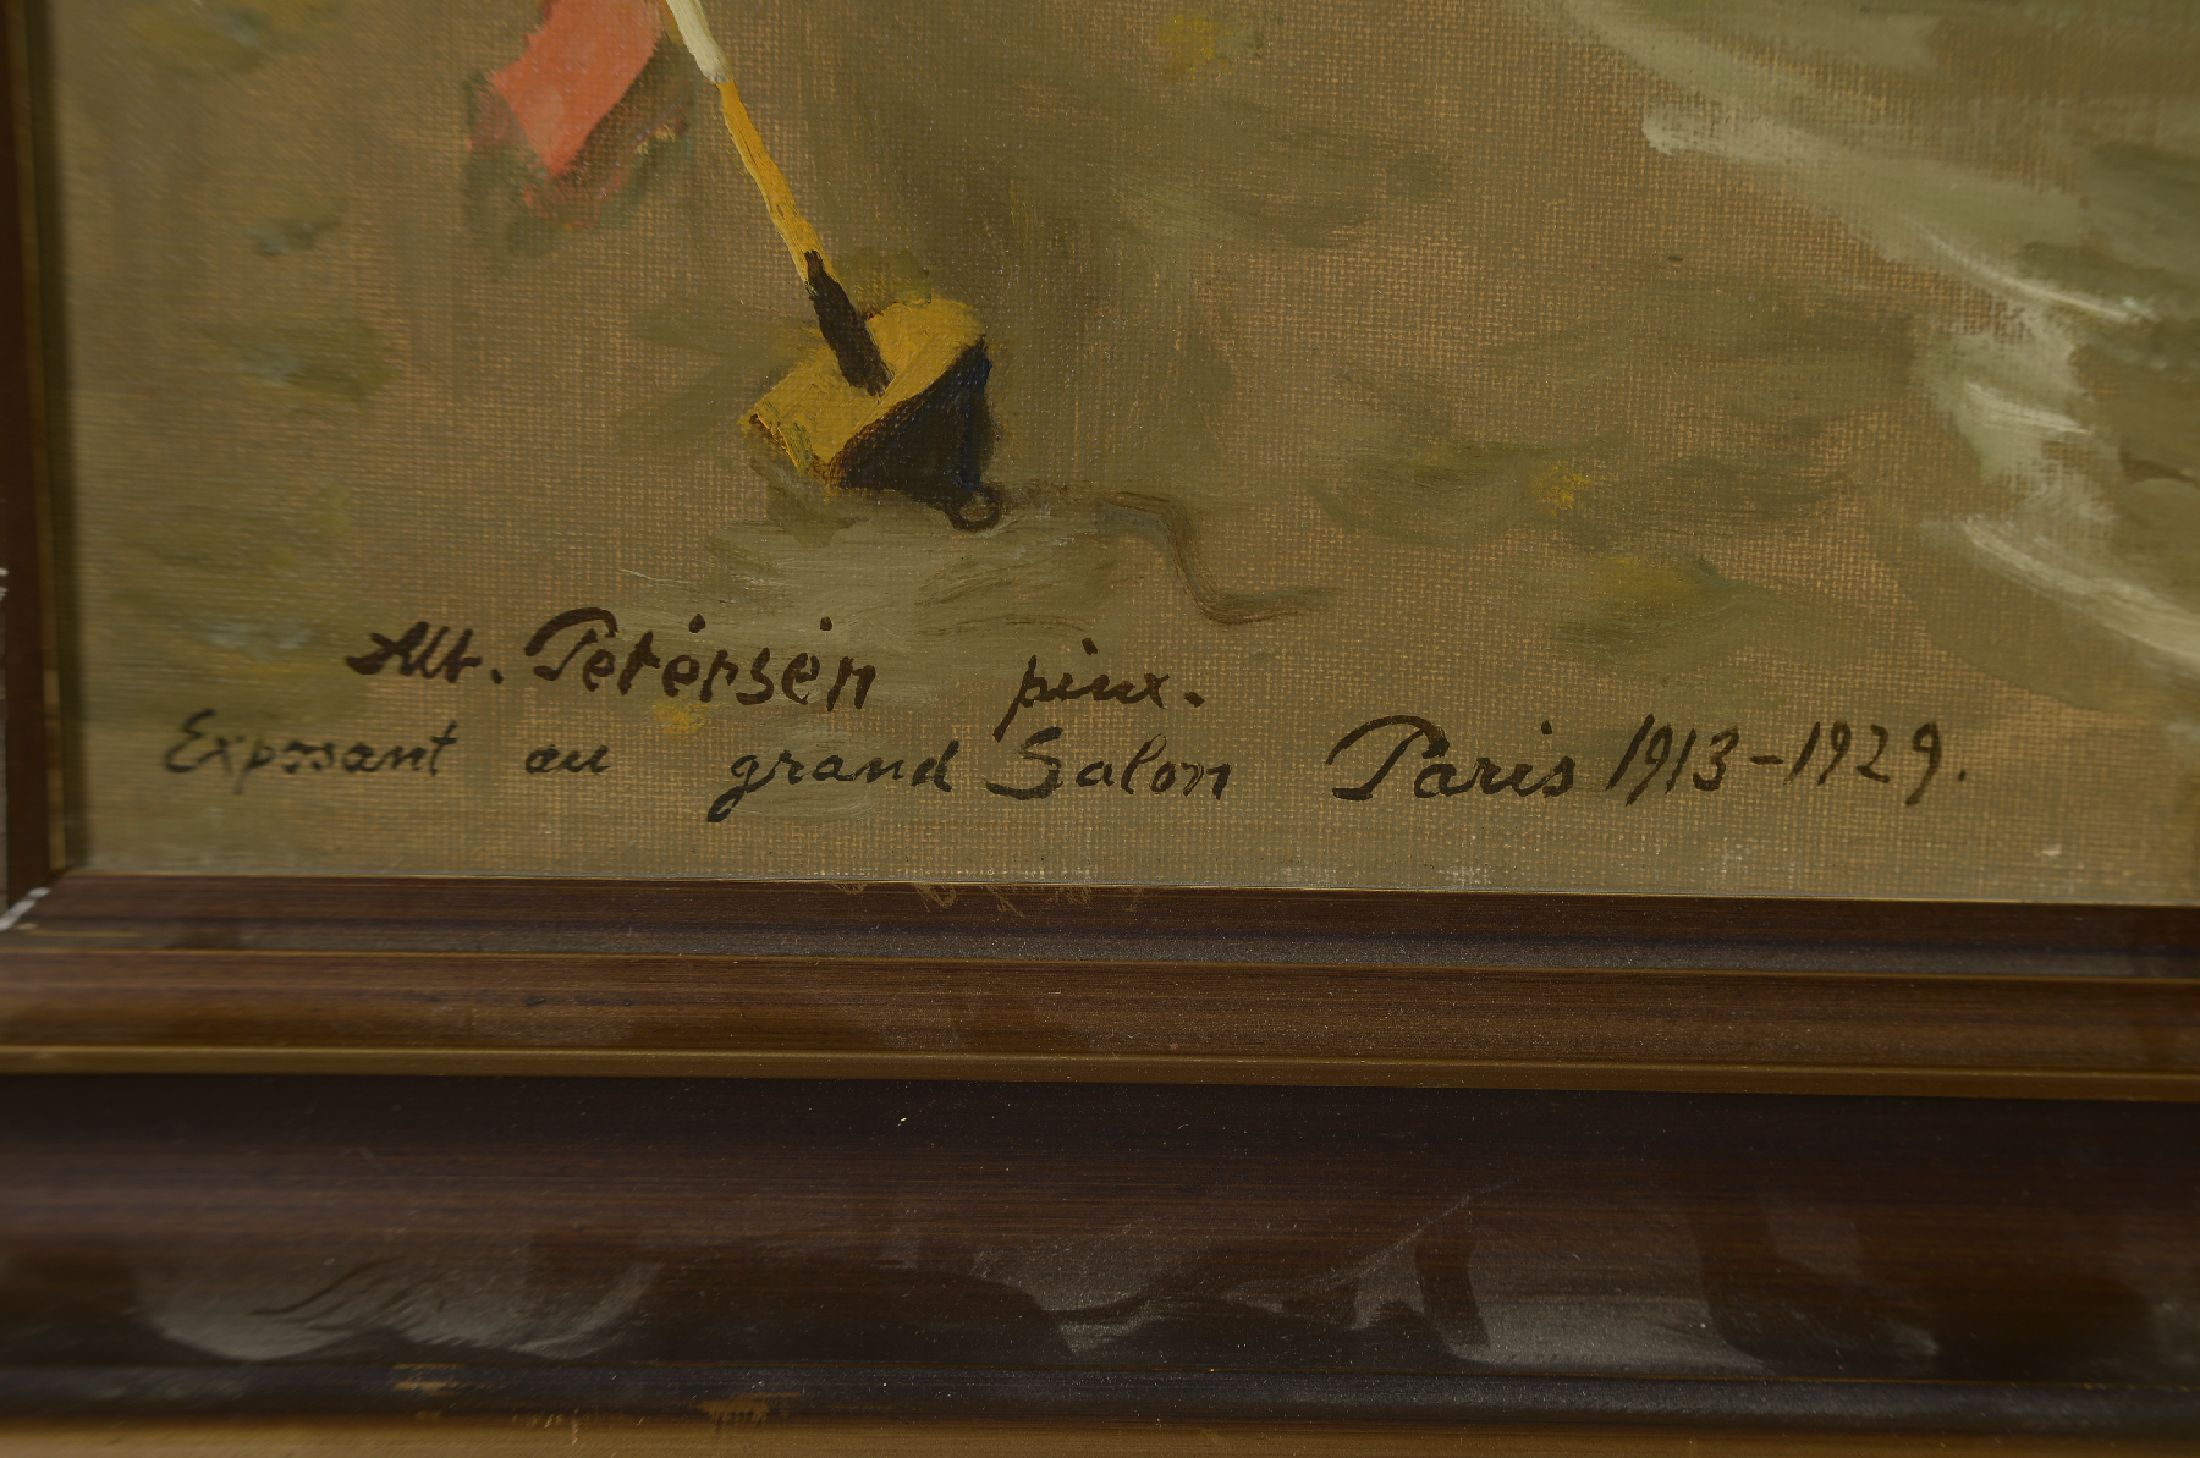 Alb. Petérsén pinx.
Exposant au grand Salon Paris 1913-1929.